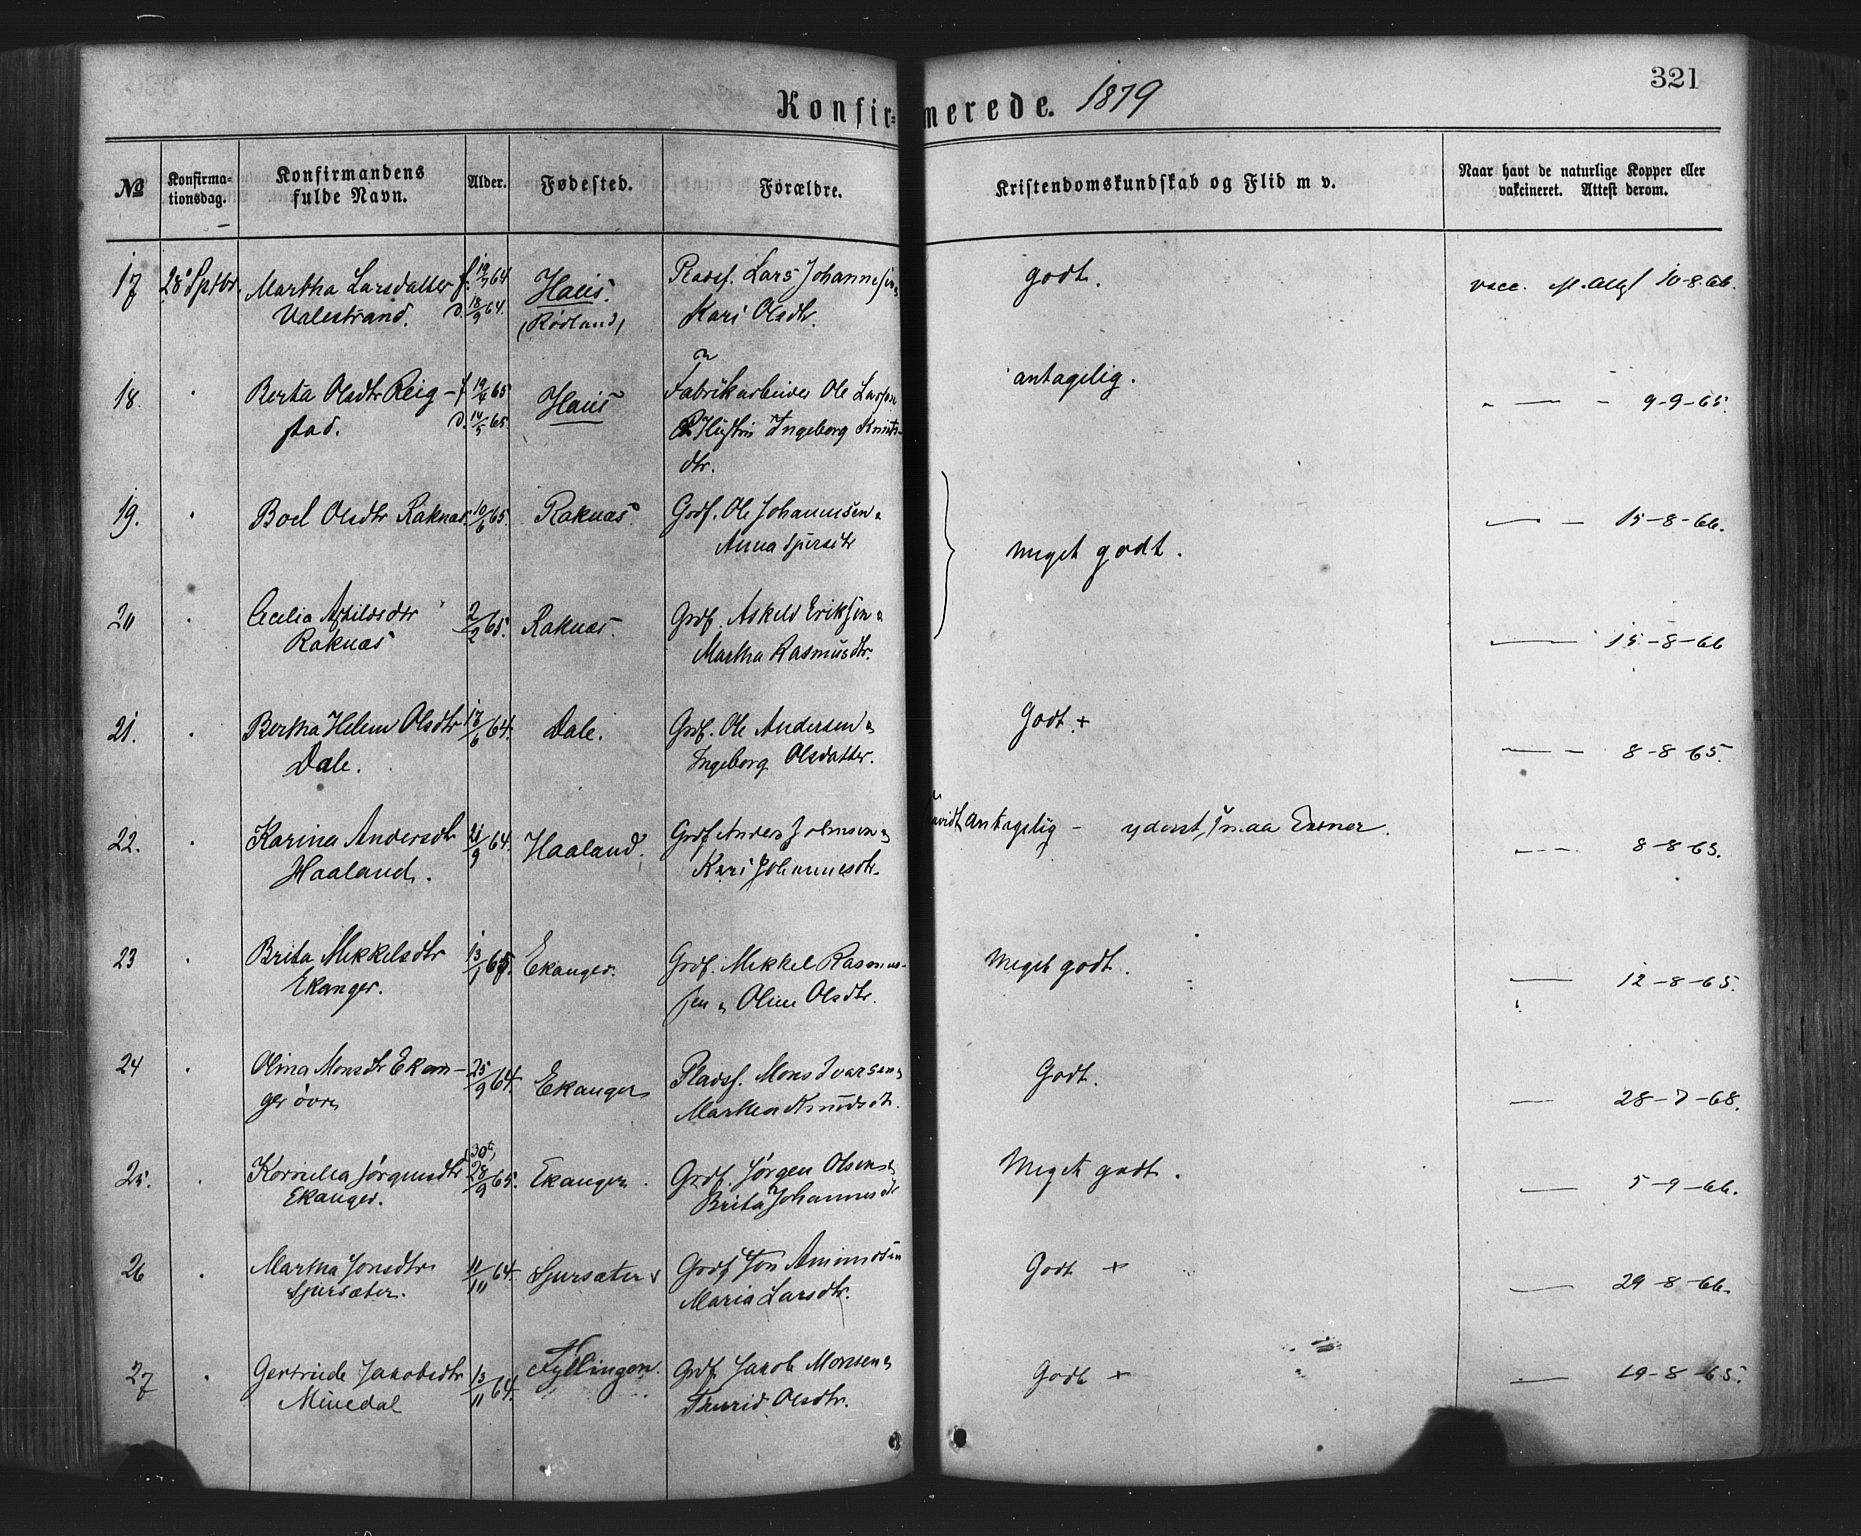 321
Konfirmerede. 1879
№ Konfirmationsdag. Konfirmandens fulde Navn. Alder. Fødested. Forældre. Kristendomskundskab og Flid m v. Naar havt de naturlige Kopper eller vakcineret. Attest derom.
17 28 Sptbr. Martha Larsdatter f. 19/7 64 Haus. Pladsf. Lars Johannesen godt. vacc. 10-8-66.
Valestrand. d. 18/9 64. (Rødland) Kari Olsdtr.
18. Berta Olsdtr Reig- f 19/4 65 Haus Fabrikarbeider Ole Larsen antagelig. 9-9-65.
stad. d. 14/5 65. Hustru Ingeborg Knuts-
dtr.
19. Boel Olsdtr Raknæs. 10/6 65. Raknæs. Grdf. Ole Johannesen 15-8-66.
Anna
meget godt.
20 Cecilia Raknæs 2/2 65. Raknæs. Grdf. Askeld Eriksen
Martha Rasmusdtr. 15-8-66
21. Bertha Helene Olsdtr 17/6 64. Dale. Grdf. Ole Andersen Godt. + 8-8-65.
Dale. Ingeborg Olsdatter.
22. Karina Andersdtr 21/9 64. Haaland. Grdf Anders antagelig - yderst smaa Evner. 8-8-65.
Haaland. Kari Johannesdtr.
23 Brita Mikkelsdtr 13/1 65. Ekanger. Grdf. Mikkel Rasmus- Meget godt. 12-8-65.
Ekanger. sen Oline Olsdtr.
24 Olina Monsdtr Ekan- 25/9 64. Ekanger Pladsf. Mons Ivarsen Godt. 28-7-68.
ger øvre Knudsdtr.
25. Kornelia Jørgensdtr 28/9 65. Ekanger. Grdf. Jørgen Olsen Meget godt. 5-9-66.
Ekanger. Brita Johannesdtr
26 Martha Jonsdtr 11/11 64. Sjursæter Grdf Jon Amundsen Godt + 29-8-66.
Sjursæter. Maria Larsdtr.
27 Gertrude Jakobsdtr 13/11 64. Fyllingen. Grdf Jakob Monsen Godt + 19-8-65.
Miuedal Olsdtr.